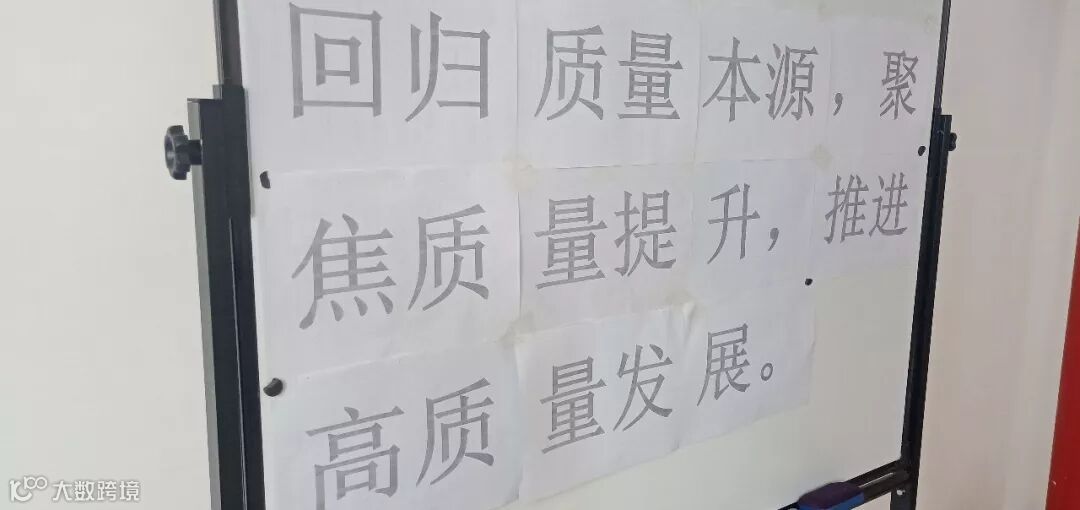 回归质量本源，聚
焦质量提升，推进
高质量发展。
大数跨境